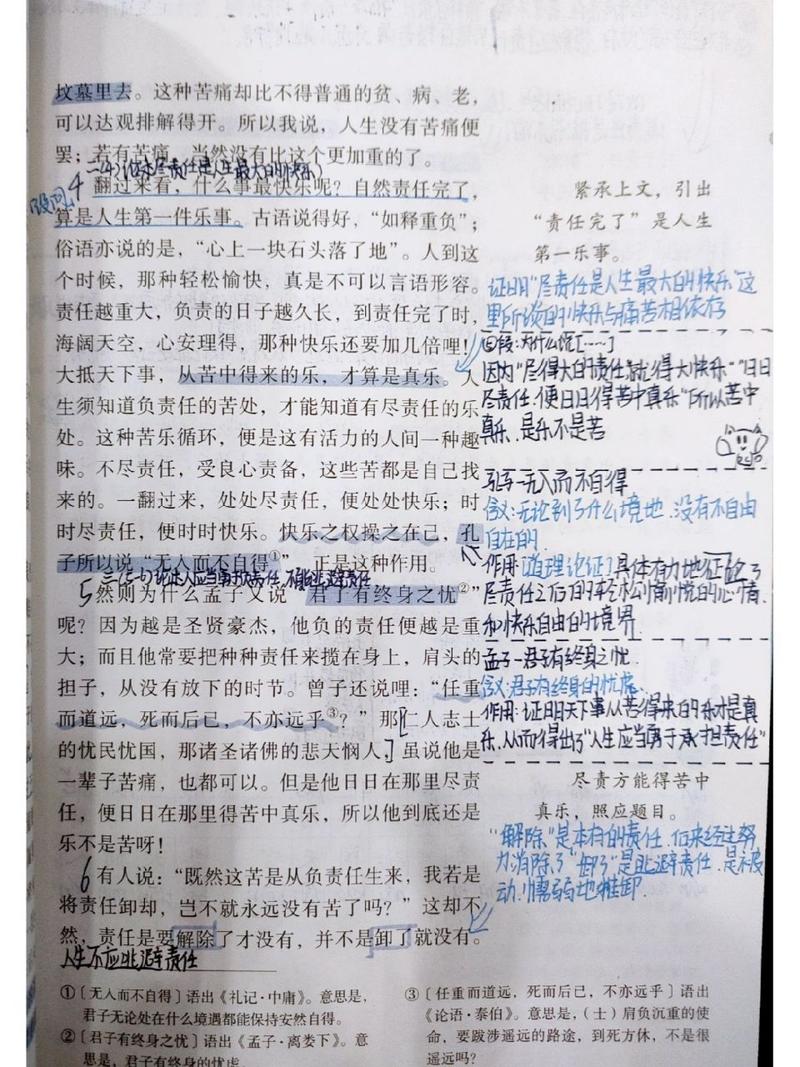 坟墓里去。这种苦痛却比不得普通的贫、病、老，
可以达观排解得开。所以我说，人生没有苦痛便
罢；若有苦痛，当然没有比这个更加重的了。
二(4)论述尽责任是人生最大的快乐
设问
4 翻过来看，什么事最快乐呢？自然责任完了，
算是人生第一件乐事。古语说得好，“如释重负”；
俗语亦说的是，“心上一块石头落了地”。人到这
个时候，那种轻松愉快，真是不可以言语形容。
责任越重大，负责的日子越久长，到责任完了时，
海阔天空，心安理得，那种快乐还要加几倍哩！
大抵天下事，从苦中得来的乐，才算是真乐。人
生须知道负责任的苦处，才能知道有尽责任的乐
处。这种苦乐循环，便是这有活力的人间一种趣
味。不尽责任，受良心责备，这些苦都是自己找
来的。一翻过来，处处尽责任，便处处快乐；时
时尽责任，便时时快乐。快乐之权操之在己，孔
子所以说“无入而不自得①”，正是这种作用。
三(5-)论述人应当勇于负责任，不能逃避责任
5 然则为什么孟子又说“君子有终身之忧②”
呢？因为越是圣贤豪杰，他负的责任便越是重
大；而且他常要把种种责任来揽在身上，肩头的
担子，从没有放下的时节。曾子还说哩：“任重
而道远，死而后已，不亦远乎③？”那[仁人志士
的忧民忧国，那诸圣诸佛的悲天悯人，]虽说他是
一辈子苦痛，也都可以。但是他日日在那里尽责
任，便日日在那里得苦中真乐，所以他到底还是
乐不是苦呀！
6 有人说：“既然这苦是从负责任生来，我若是
将责任卸却，岂不就永远没有苦了吗？”这却不
然，责任是要解除了才没有，并不是卸了就没有。
人生不应逃避责任
紧承上文，引出
“责任完了”是人生
第一乐事。
证明“尽责任是人生最大的快乐”这
里所谈的快乐与痛苦相依存
回答:为什么说[……]
因为“尽得大的责任就得大快乐”“日日
尽责任,便日日得苦中真乐”所以苦中
真乐,是乐不是苦
孔子—无入而不自得
含义:无论到了什么境地,没有不自由
自在的
作用:道理论证,具体有力地证明了
尽责任之后的轻松愉悦的心情
和快乐自由的境界
孟子—君子有终身之忧
含义:君子有终身的忧虑
作用:证明天下事从苦得来的乐才是真
乐,从而得出了“人生应当勇于承担责任”
尽责方能得苦中
真乐，照应题目。
“解除”是本有的责任,后来经过努
力消除了“卸了”是逃避责任,是被
动、懦弱地推卸
①〔无入而不自得〕语出《礼记·中庸》。意思是，
君子无论处在什么境遇都能保持安然自得。
②〔君子有终身之忧〕语出《孟子·离娄下》。意
思是，君子有终身的忧虑。
③〔任重而道远，死而后已，不亦远乎〕语出
《论语·泰伯》。意思是，（士）肩负沉重的使
命，要跋涉遥远的路途，到死方休，不是很
遥远吗？